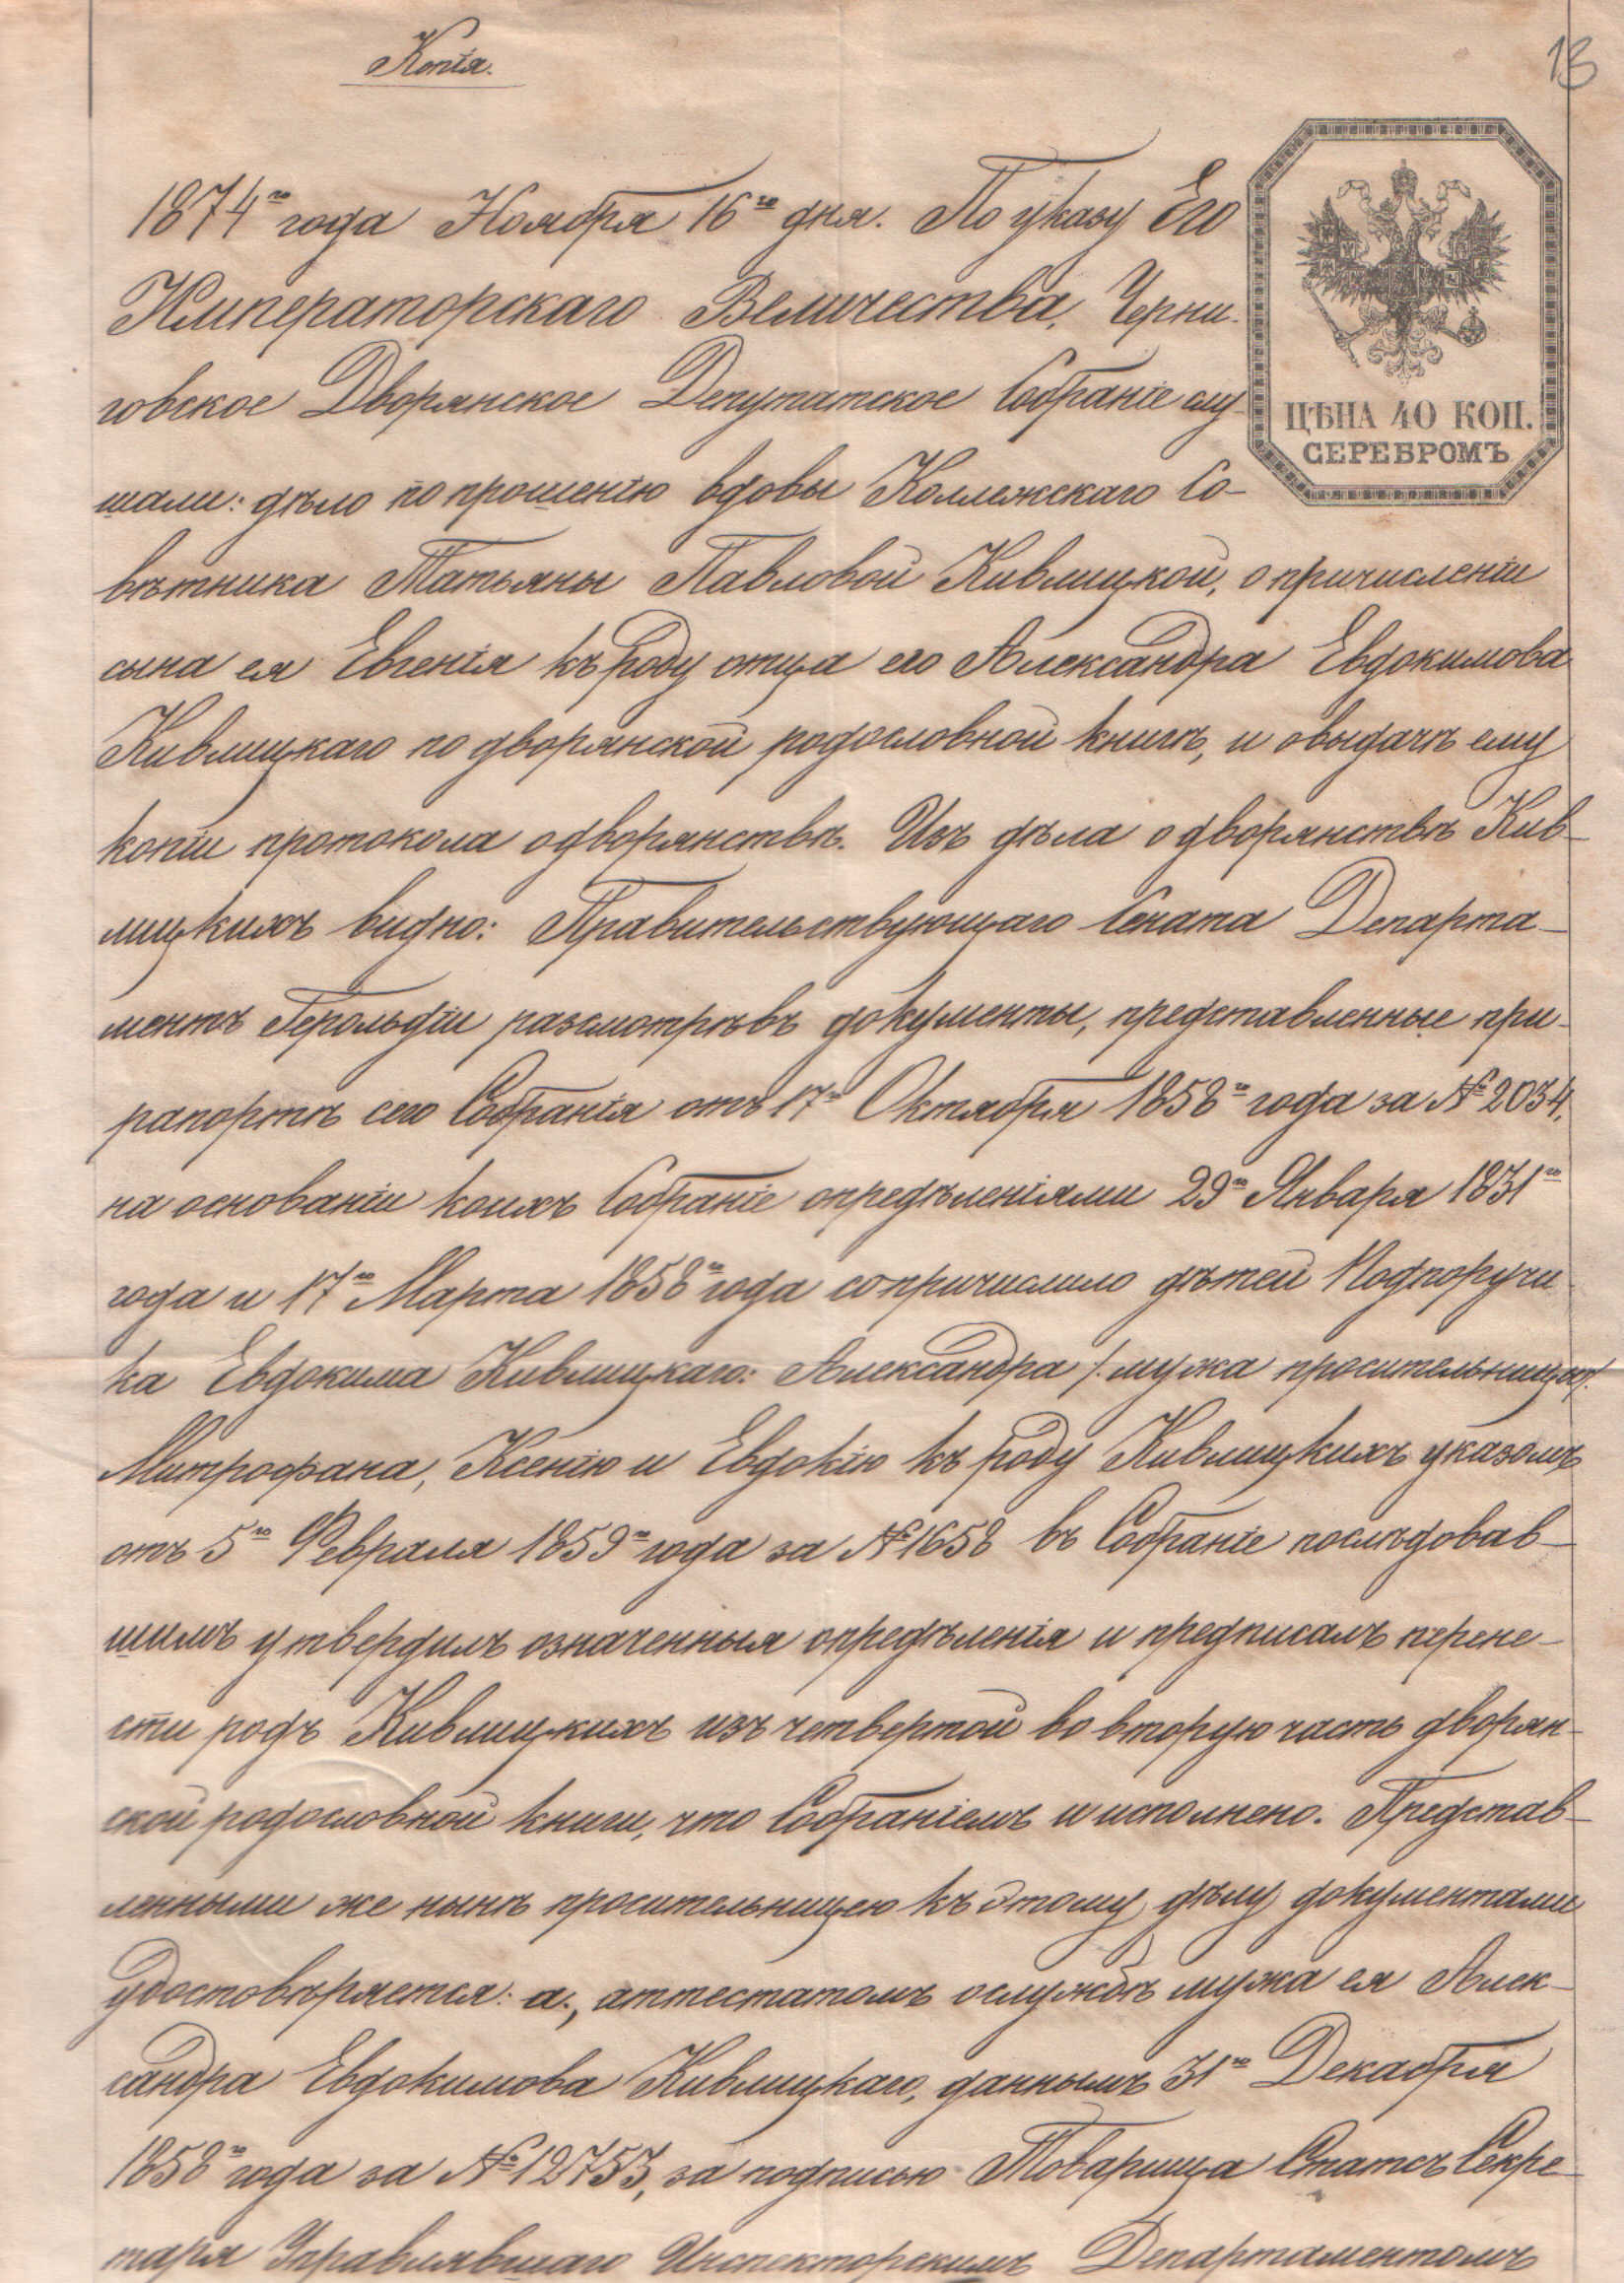 Копія.
13
1874го года Ноября 16го дня. По указу Его
Императорскаго Величества, Черни-
говское Дворянское Депутатское Собраніе слу-
шали: дѣло по прошенію вдовы Коллежскаго Со-
вѣтника Татьяны Павловой Кивлицкой, о причисленіи
сына ея Евгенія къ роду отца его Александра Евдокимова
Кивлицкаго по дворянской родословной книгѣ, и о выдачѣ ему
копіи протокола о дворянствѣ. Изъ дѣла о дворянствѣ Кив-
лицкихъ видно: Правительствующаго Сената Департа-
ментъ Герольдіи разсмотрѣвъ документы, представленные при
рапортѣ сего Собранія отъ 17го Октября 1858го года за № 2034,
на основаніи коихъ Собраніе опредѣленіями 29го Января 1831го
года и 17го Марта 1858го года сопричислило дѣтей Подпоручи-
ка Евдокима Кивлицкаго: Александра /: мужа просительницы :/
Митрофана, Ксенію и Евдокію къ роду Кивлицкихъ указомъ
отъ 5го Февраля 1859го года за № 1658 въ Собраніе послѣдовав-
шимъ утвердилъ означенныя опредѣленія и предписалъ перене-
сти родъ Кивлицкихъ изъ четвертой во вторую часть дворян-
ской родословной книги, что Собраніемъ и исполнено. Представ-
ленными же нынѣ просительницею къ этому дѣлу документами
удостовѣряется: а., аттестатомъ о службѣ мужа ея Алек-
сандра Евдокимова Кивлицкаго, даннымъ 31го Декабря
1858го года за № 12753, за подписью Товарища Статсъ Секре-
таря Управлявшаго Инспекторскимъ Департаментомъ
ЦѢНА 40 КОП.
СЕРЕБРОМЪ